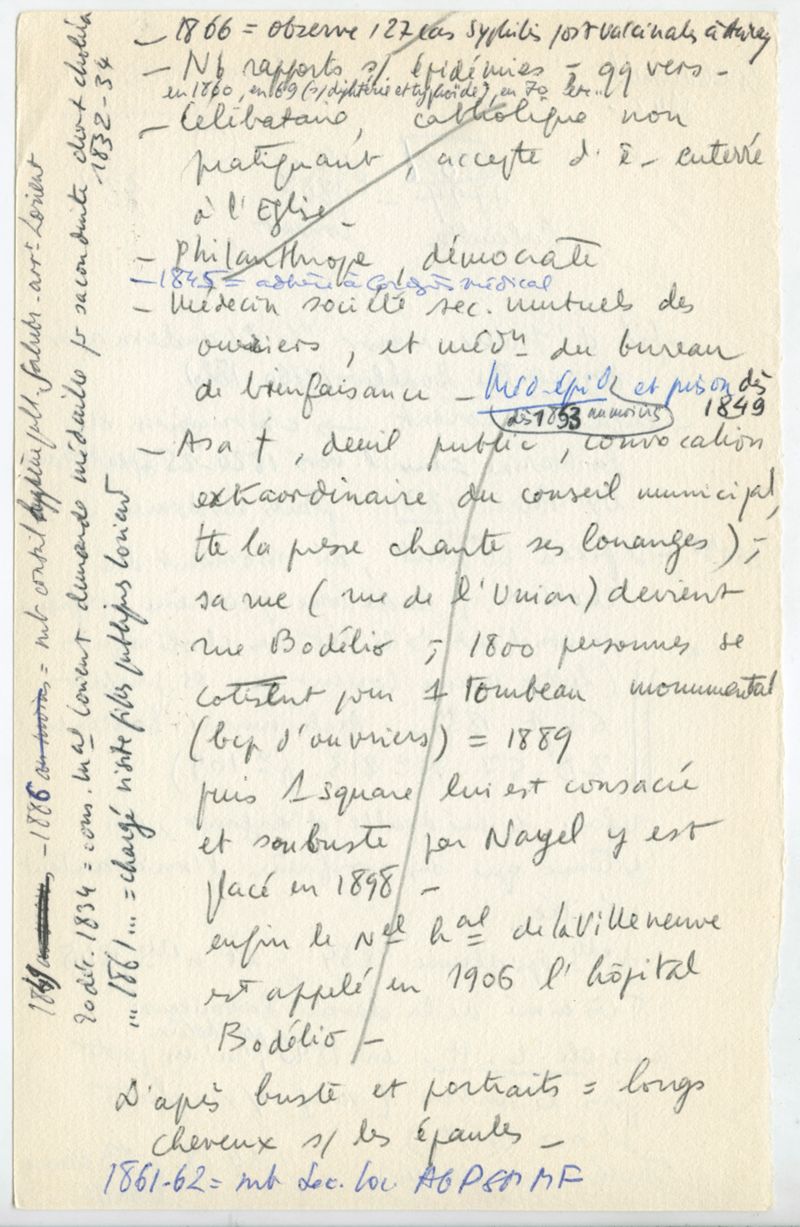 - 1866 = observe 127 cas syphilis post vaccinale à Auray
- Nb rapports s/ épidémies - qq vers -
en 1860, en 69 (s/ diphtérie et typhoïde), en 70 etc...
- Célibataire, catholique non
pratiquant, accepte d'ê- enterré
à l'Eglise -
- Philanthrope, démocrate
- 1845 = adhère à Congrès médical
- Médecin société sec. mutuels des
ouvriers, et médn du bureau
de bienfaisance - Méd. épid. et prison dès
dès 1853 au moins 1849
- A sa †, deuil public, convocation
extraordinaire du conseil municipal,
tte la presse chante ses louanges) ;
sa rue (rue de l'Union) devient
rue Bodélio ; 1800 personnes se
cotisent pour 1 tombeau monumental
(bcp d'ouvriers) = 1889
puis 1 square lui est consacré
et son buste par Nayel y est
placé en 1898 -
enfin le Nel hal de la Villeneuve
est appelé en 1906 l'hôpital
Bodélio -
D'après buste et portraits = longs
cheveux s/ les épaules -
1861-62 = mb Soc. loc. AGPSMMF
1869 - 1886 au moins = mb conseil hygiène publ. salubr. arrt Lorient
20 déc. 1834 = cons. mal Lorient demande médaille pr sa conduite dvt choléra
1832-34
... 1861 ... = chargé visite filles publiques Lorient